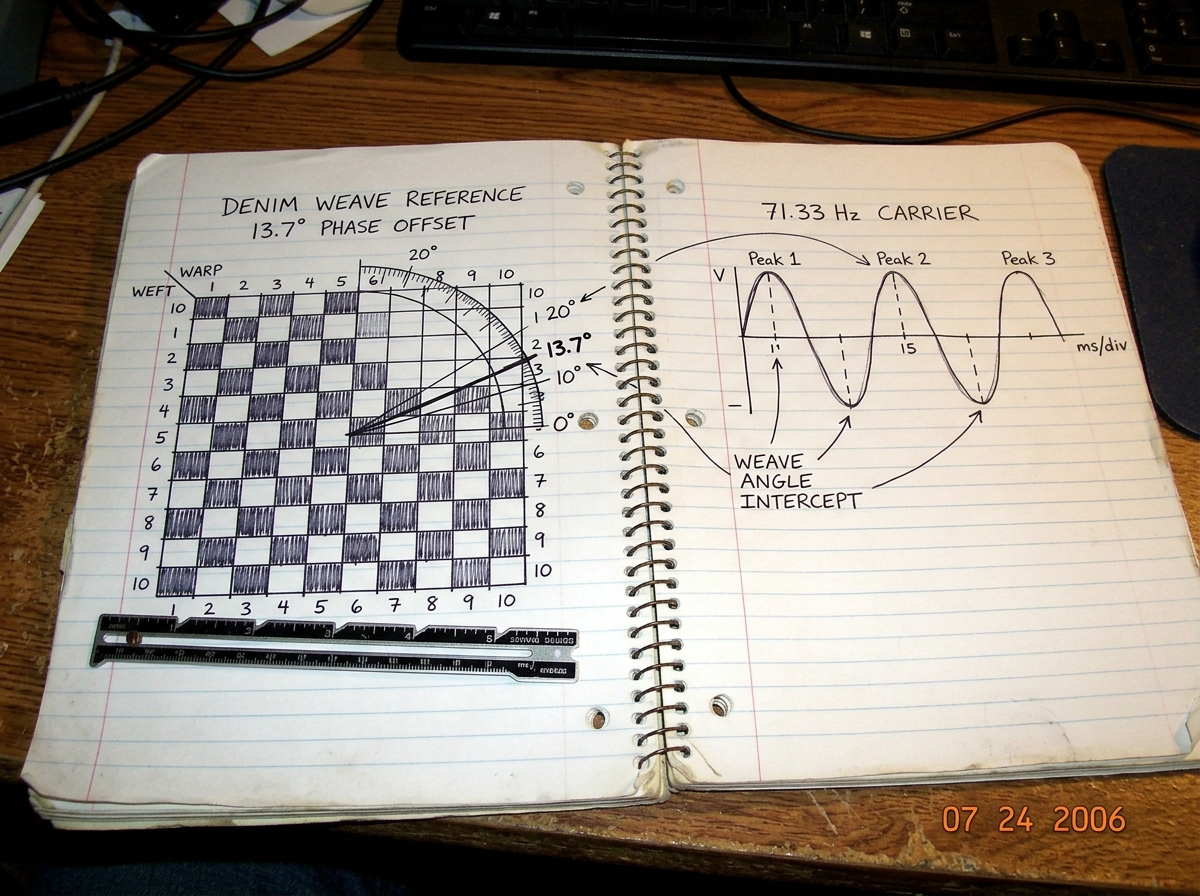 DENIM WEAVE REFERENCE
13.7° PHASE OFFSET
20°
WARP
WEFT
1 2 3 4 5 6 8 9 10
10
1
2
3
4
5
6
7
8
9
10
10
1
2
3
6
7
8
9
10
20°
13.7°
10°
0°
1 2 3 4 5 6 7 8 9 10
71.33 Hz CARRIER
Peak 1 Peak 2 Peak 3
V
15
ms/div
–
WEAVE
ANGLE
INTERCEPT
07 24 2006